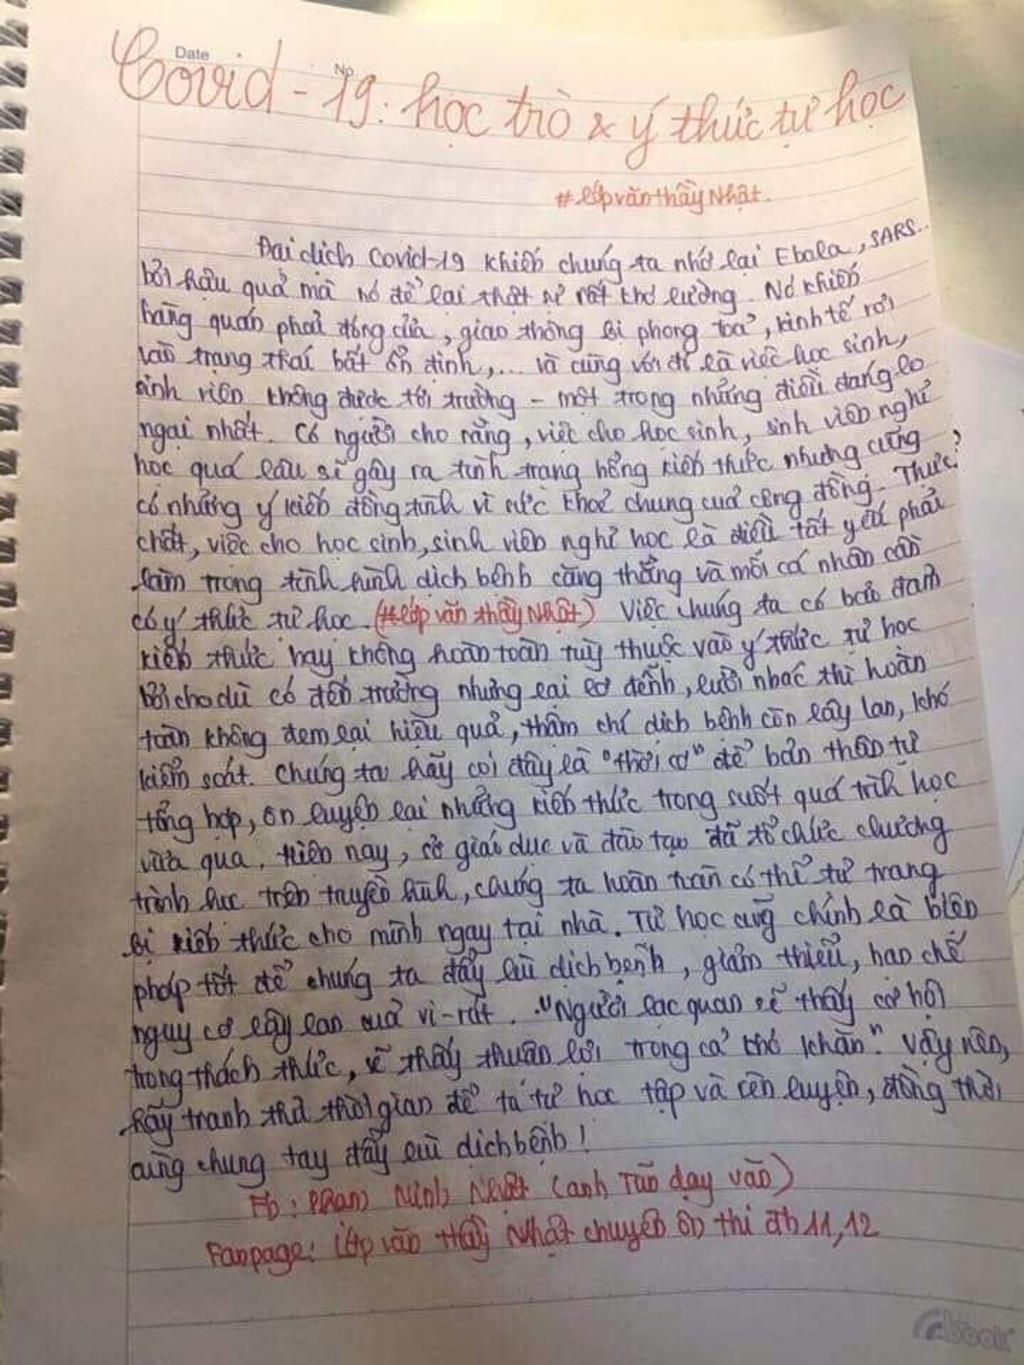 Date
No
Covid-19: học trò & ý thức tự học
#lớpvănthầyNhật.
Đại dịch Covid-19 khiến chúng ta nhớ lại Ebola, SARS..
bởi hậu quả mà nó để lại thật sự rất khó lường. Nó khiến
hàng quán phải đóng cửa, giao thông bị phong toả, kinh tế rơi
vào trạng thái bất ổn định,... và cùng với đó là việc học sinh,
sinh viên không được tới trường - một trong những điều đáng lo
ngại nhất. Có người cho rằng, việc cho học sinh, sinh viên nghỉ
học quá lâu sẽ gây ra tình trạng hổng kiến thức nhưng cũng
có những ý kiến đồng tình vì sức khoẻ chung của cộng đồng. Thực
chất, việc cho học sinh, sinh viên nghỉ học là điều tất yếu phải
làm trong tình hình dịch bệnh căng thẳng và mỗi cá nhân cần
có ý thức tự học. (#lớp văn thầy Nhật) Việc chúng ta có bảo đảm
kiến thức hay không hoàn toàn tuỳ thuộc vào ý thức tự học
bởi cho dù có đến trường nhưng lại lơ đễnh, lười nhác thì hoàn
toàn không đem lại hiệu quả, thậm chí dịch bệnh còn lây lan, khó
kiểm soát. Chúng ta hãy coi đây là "thời cơ" để bản thân tự
tổng hợp, ôn luyện lại những kiến thức trong suốt quá trình học
vừa qua. Hiện nay, sở giáo dục và đào tạo đã tổ chức chương
trình học trên truyền hình, chúng ta hoàn toàn có thể tự trang
bị kiến thức cho mình ngay tại nhà. Tự học cũng chính là biện
pháp tốt để chúng ta đẩy lùi dịch bệnh, giảm thiểu, hạn chế
nguy cơ lây lan của vi-rút. "Người lạc quan sẽ thấy cơ hội
trong thách thức, sẽ thấy thuận lợi trong cả khó khăn." Vậy nên,
hãy tranh thủ thời gian để ta tự học tập và rèn luyện, đồng thời
cùng chung tay đẩy lùi dịch bệnh!
Fb: Phan Minh Nhật (anh Tũn dạy văn)
Fanpage: Lớp văn thầy Nhật chuyên ôn thi đh 11, 12